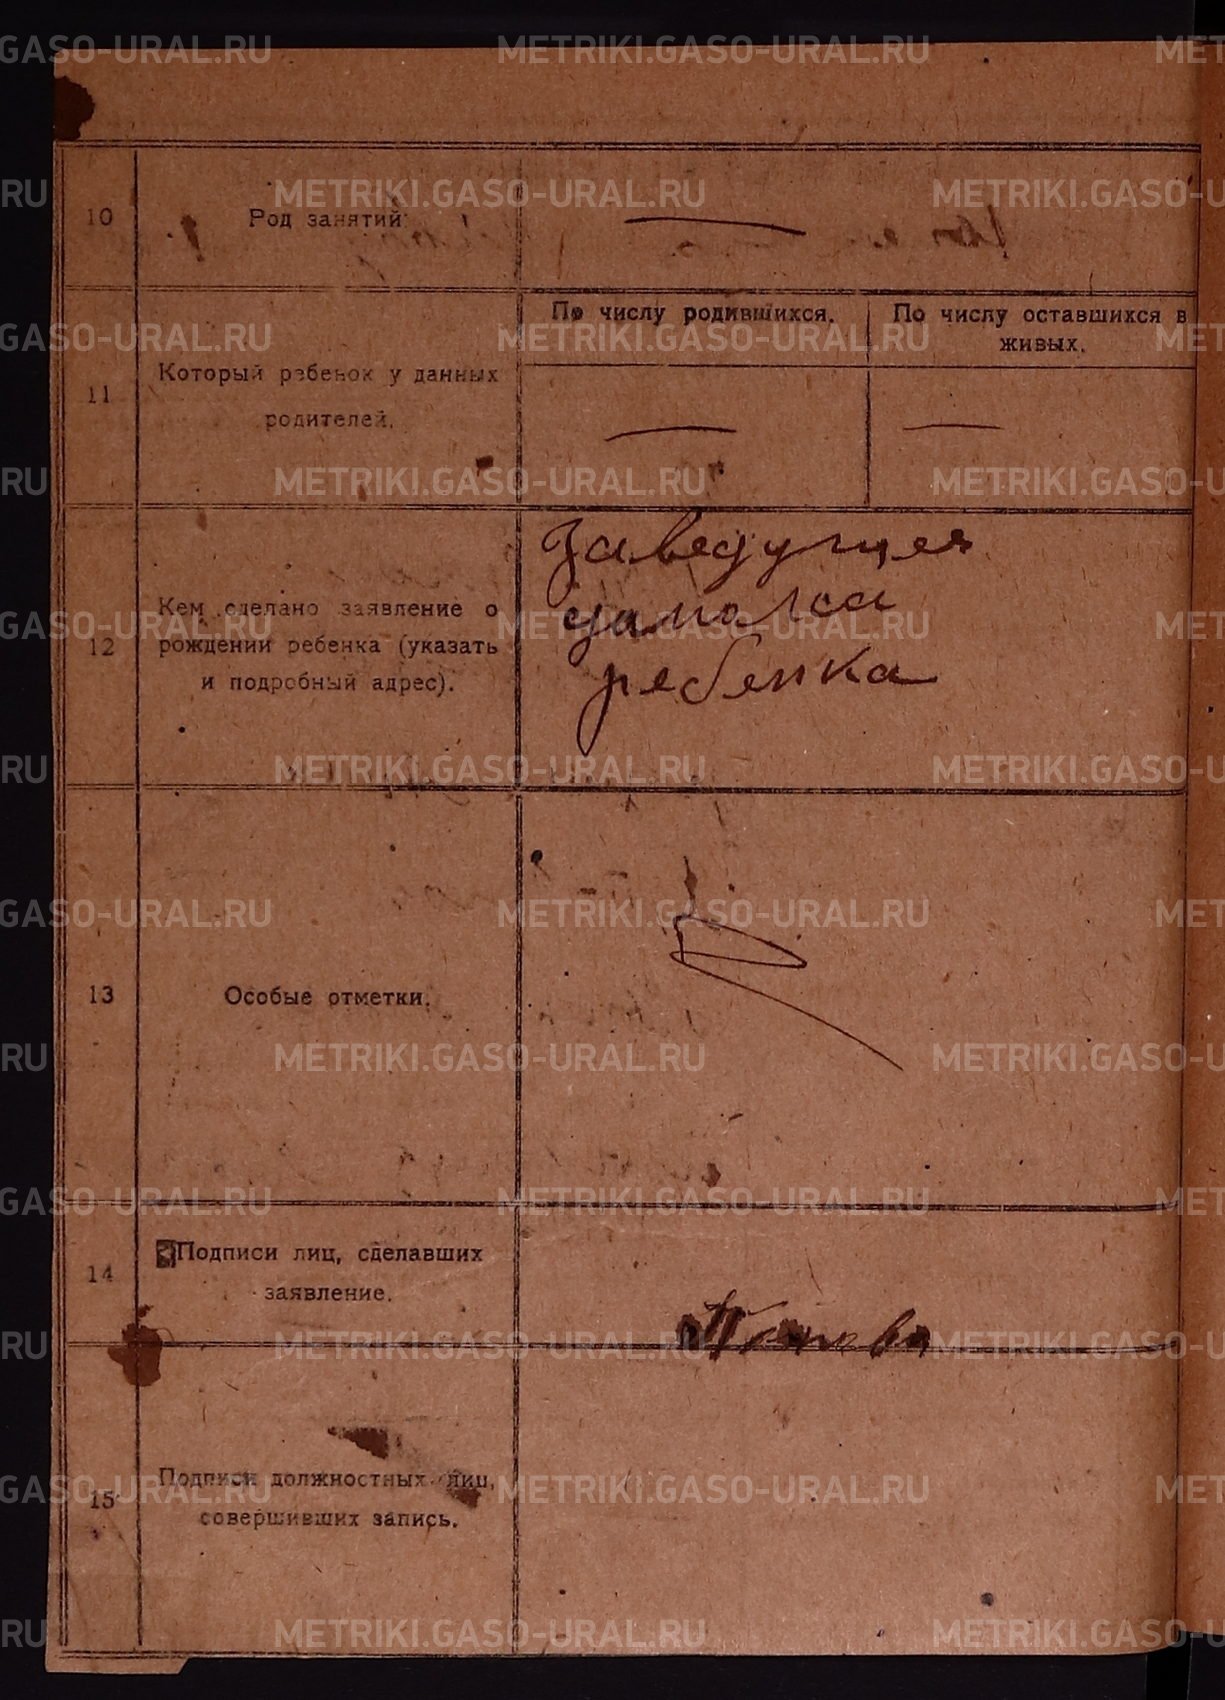 10
Род занятий:
—
11
Который ребенок у данных
родителей.
По числу родившихся.
По числу оставшихся в
живых.
—
—
12
Кем сделано заявление о
рождении ребенка (указать
и подробный адрес).
Заведующая
ребенка
13
Особые отметки.
14
Подписи лиц, сделавших
заявление.
15
Подписи должностных лиц,
совершивших запись.
METRIKI.GASO-URAL.RU